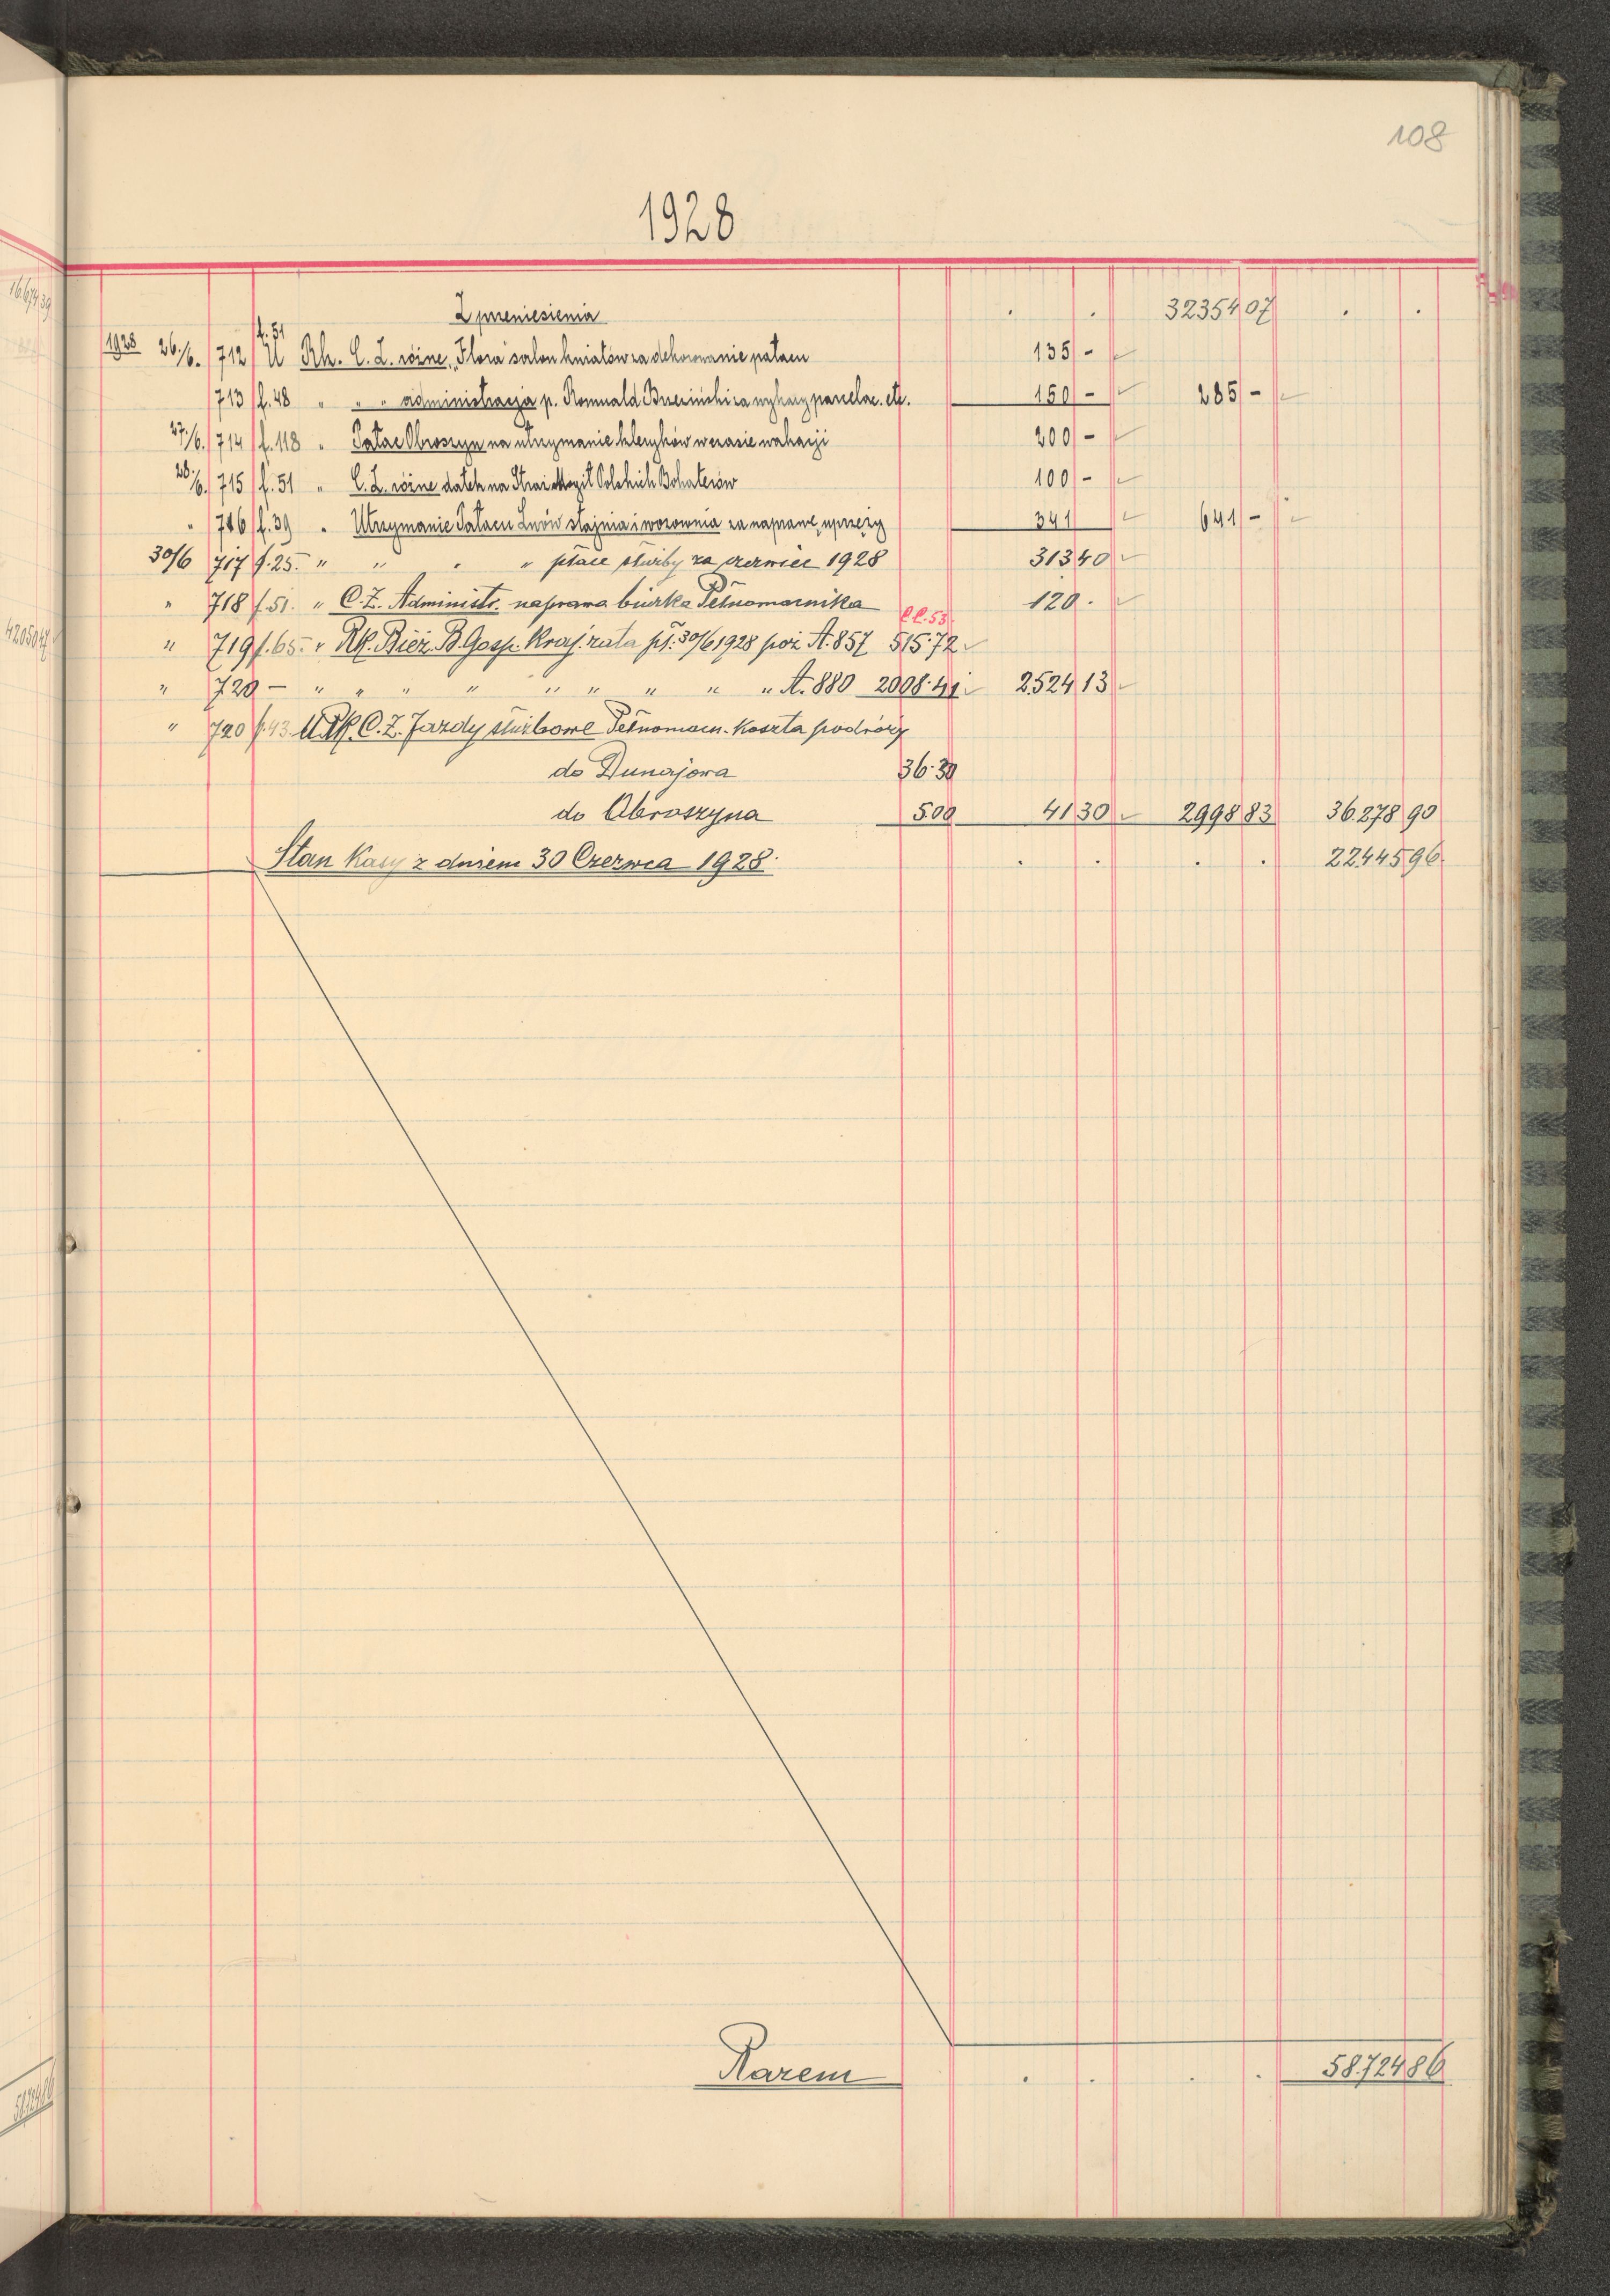 108
1928
Z przeniesienia . . 32354 07 . .
1928 26./6. 712 f. 51 U Rk. C. Z. różne „Flora" salon kwiatów za dekorowanie pałacu 135 -
713 f. 48 " " " administracja p. Romuald za wykazy parcelac. etc. 150 - 285 -
27./6. 714 f. 118 " Pałac Obroszyn na utrzymanie kleryków w czasie wakacji 200 -
28./6. 715 f. 51 " C. Z. różne datek na Straż Mogił Polskich Bohaterów 100 -
" 716 f. 39 " Utrzymanie Pałacu Lwów stajnia i wozownia za naprawę uprzęży 341 641 -
30/6 717 f. 25. " " " " płace służby za czerwiec 1928 313 40
" 718 f. 51. " C. Z. Administr. naprawa biurka Pełnomocnika 120 .
" 719 f. 65. " Rk. Bież. B. Gosp. Kraj. rata pł. 30/6 1928 poż. A. 857 515.72
" 720 — " " " " " " " " " A. 880 2008.41 2.524 13
" 720 f. 43. U Rk. C. Z. Jazdy służbowe Pełnomocn. koszta podróży
do Dunajowa 36.30
do Obroszyna 5.00 41 30 2998 83 36.278 90
Stan Kasy z dniem 30 Czerwca 1928. . . . . 22.445 96
Razem . . . . 58.724 86